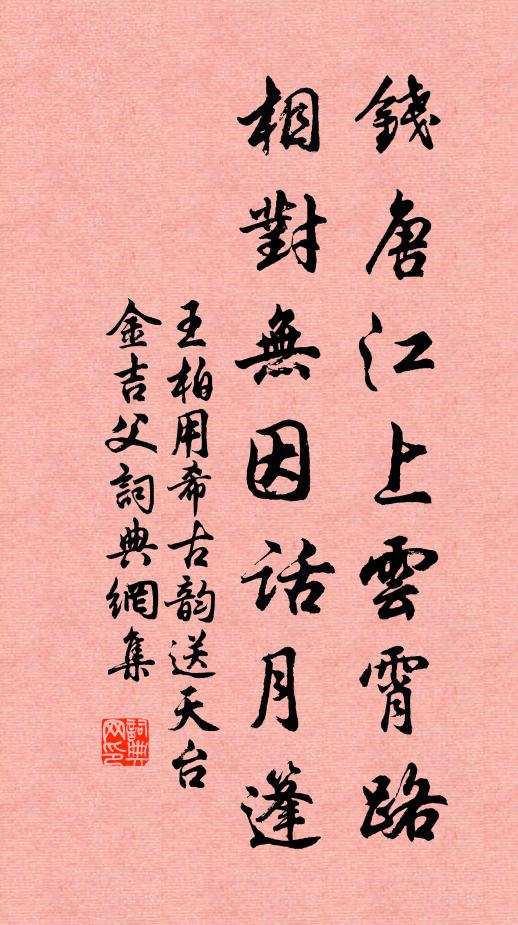 錢唐江上雲霄路
相對無因话月蓬
王柏用希古韵送天台
金吉父詞典網集
詞典
网印